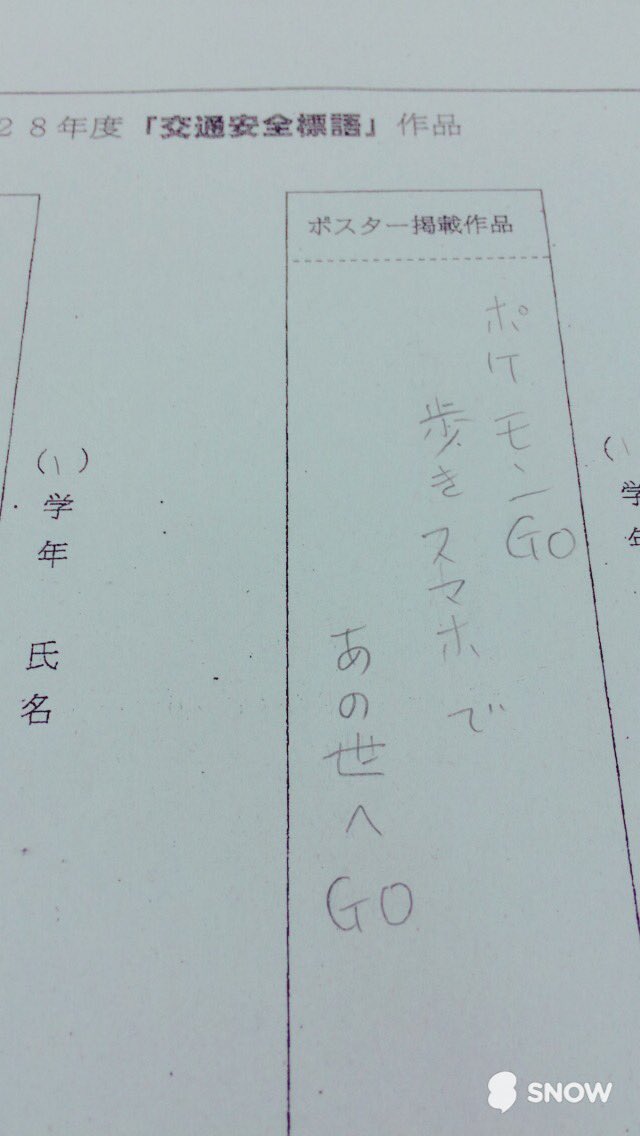 ２８年度「交通安全標語」作品
ポスター掲載作品
ポケモンGO
歩きスマホで
あの世へGO
(1)学年 氏名
SNOW